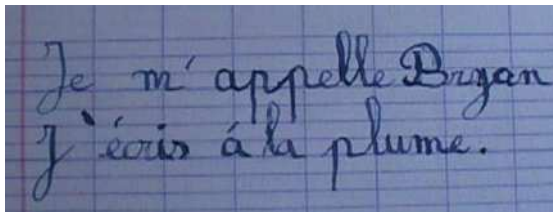 Je m'appelle Bryan
J'écris á la plume.